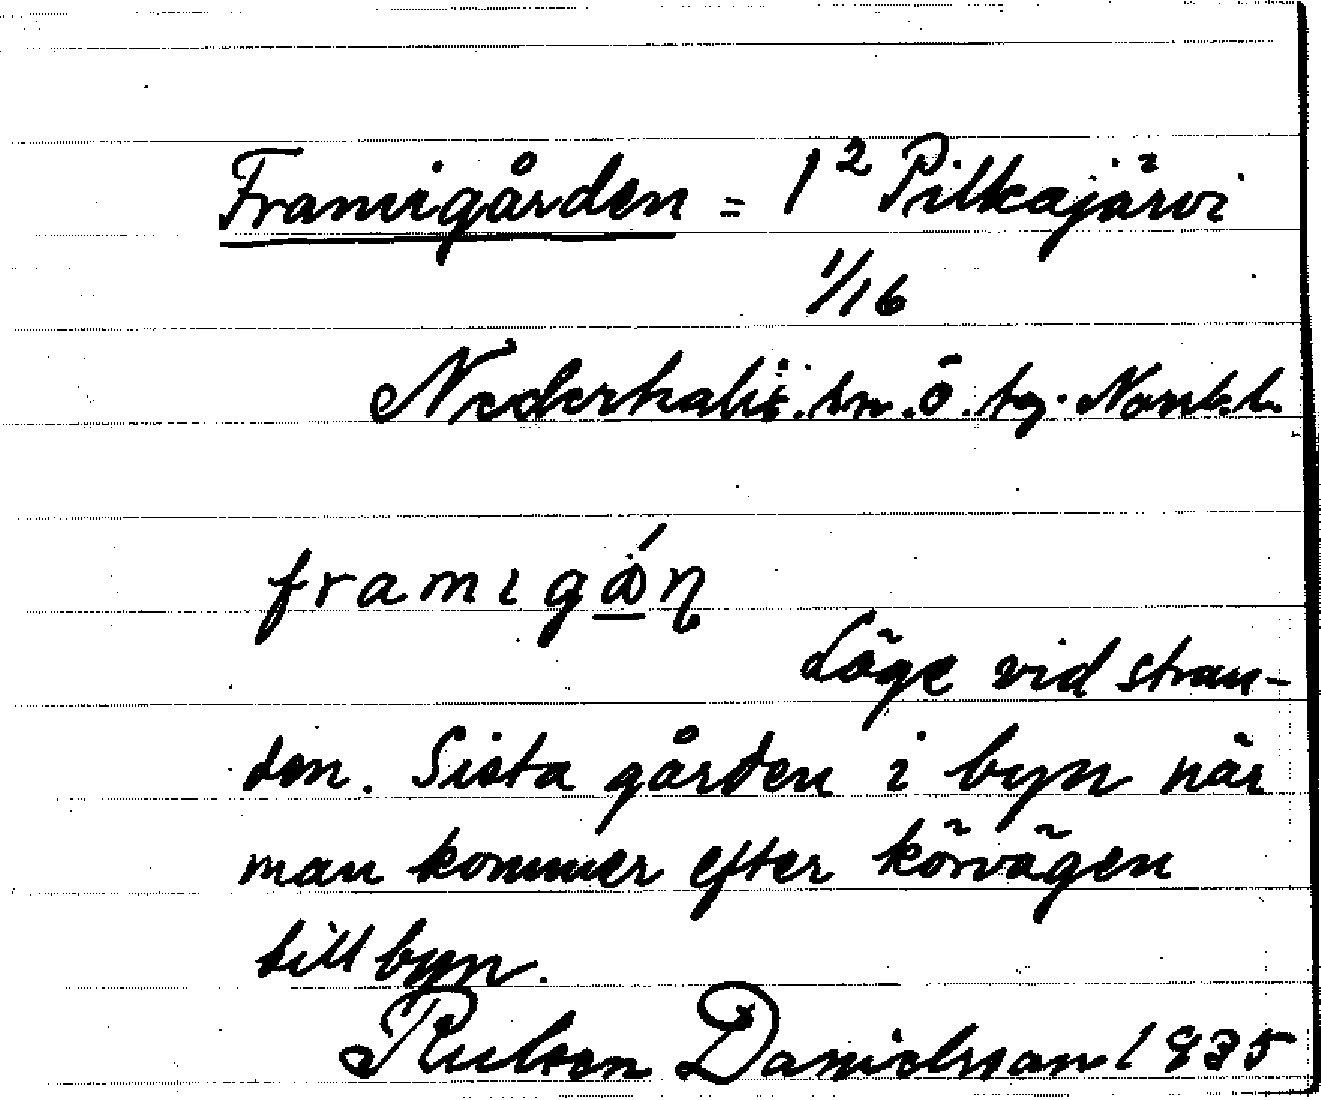 Framigården = 1² Pilkajärvi
1/16
Nederkalix. sn. ö. tg. Norrb. l.
framıgån
Läge vid stran-
den. Sista gården i byn när
man kommer efter körvägen
till byn.
Ruben Danielsson 1935